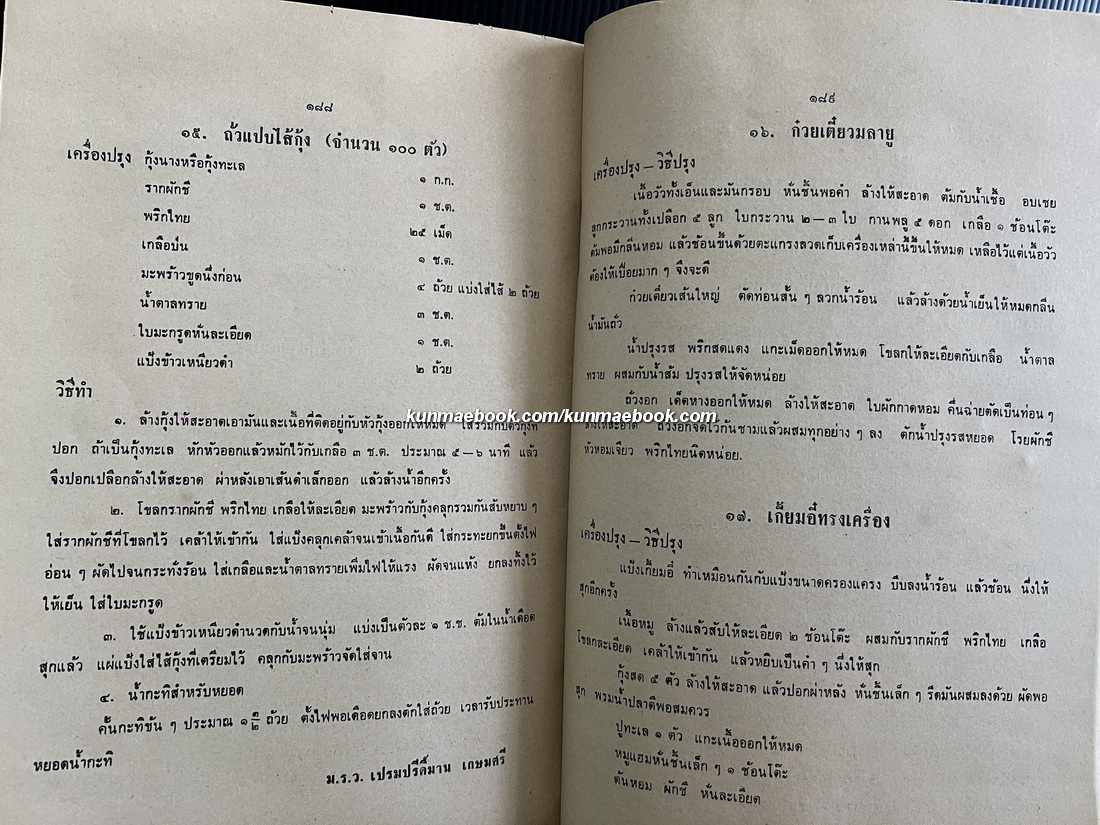 ๑๘๘
๑๕. ถั่วแปบไส้กุ้ง (จำนวน ๑๐๐ ตัว)
เครื่องปรุง กุ้งนางหรือกุ้งทะเล ๑ ก.ก.
รากผักชี ๑ ช.ต.
พริกไทย ๒๕ เม็ด
เกลือป่น ๑ ช.ต.
มะพร้าวขูดนึ่งก่อน ๔ ถ้วย แบ่งใส่ไส้ ๒ ถ้วย
น้ำตาลทราย ๓ ช.ต.
ใบมะกรูดหั่นละเอียด ๑ ช.ต.
แป้งข้าวเหนียวดำ ๒ ถ้วย
วิธีทำ
๑. ล้างกุ้งให้สะอาดเอามันและเนื้อที่ติดอยู่กับหัวกุ้งออกให้หมด ใส่รวมกับตัวกุ้งที่
ปอก ถ้าเป็นกุ้งทะเล หักหัวออกแล้วหมักไว้กับเกลือ ๓ ช.ต. ประมาณ ๕ — ๖ นาที แล้ว
จึงปอกเปลือกล้างให้สะอาด ผ่าหลังเอาเส้นดำเล็กออก แล้วล้างน้ำอีกครั้ง
๒. โขลกรากผักชี พริกไทย เกลือให้ละเอียด มะพร้าวกับกุ้งคลุกรวมกันสับหยาบ ๆ
ใส่รากผักชีที่โขลกไว้ เคล้าให้เข้ากัน ใส่แป้งคลุกเคล้าจนเข้าเนื้อกันดี ใส่กระทะยกขึ้นตั้งไฟ
อ่อน ๆ ผัดไปจนกระทั่งร้อน ใส่เกลือและน้ำตาลทรายเพิ่มไฟให้แรง ผัดจนแห้ง ยกลงทิ้งไว้
ให้เย็น ใส่ใบมะกรูด
๓. ใช้แป้งข้าวเหนียวดำนวดกับน้ำจนนุ่ม แบ่งเป็นตัวละ ๑ ช.ช. ต้มในน้ำเดือด
สุกแล้ว แผ่แป้งใส่ไส้กุ้งที่เตรียมไว้ คลุกกับมะพร้าวจัดใส่จาน
๔. น้ำกะทิสำหรับหยอด
คั้นกะทิข้น ๆ ประมาณ ๑ ๑/๒ ถ้วย ตั้งไฟพอเดือดยกลงตักใส่ถ้วย เวลารับประทาน
หยอดน้ำกะทิ
ม.ร.ว. เปรมปรีดิ์มาน เกษมศรี
๑๘๙
๑๖. ก๋วยเตี๋ยวมลายู
เครื่องปรุง — วิธีปรุง
เนื้อวัวทั้งเอ็นและมันกรอบ หั่นชิ้นพอคำ ล้างให้สะอาด ต้มกับน้ำเชื้อ อบเชย
ลูกกระวานทั้งเปลือก ๕ ลูก ใบกระวาน ๒ — ๓ ใบ กานพลู ๕ ดอก เกลือ ๑ ช้อนโต๊ะ
ต้มพอมีกลิ่นหอม แล้วช้อนขึ้นด้วยตะแกรงลวดเก็บเครื่องเหล่านี้ขึ้นให้หมด เหลือไว้แต่เนื้อวัว
ต้องให้เปื่อยมาก ๆ จึงจะดี
ก๋วยเตี๋ยวเส้นใหญ่ ตัดท่อนสั้น ๆ ลวกน้ำร้อน แล้วล้างด้วยน้ำเย็นให้หมดกลิ่น
น้ำมันถั่ว
น้ำปรุงรส พริกสดแดง แกะเม็ดออกให้หมด โขลกให้ละเอียดกับเกลือ น้ำตาล
ทราย ผสมกับน้ำส้ม ปรุงรสให้จัดหน่อย
ถั่วงอก เด็ดหางออกให้หมด ล้างให้สะอาด ใบผักกาดหอม คื่นฉ่ายตัดเป็นท่อน ๆ
ล้างให้สะอาด ถั่วงอกจัดไว้ก้นชามแล้วผสมทุกอย่าง ๆ ลง ตักน้ำปรุงรสหยอด โรยผักชี
หัวหอมเจียว พริกไทยนิดหน่อย.
kunmaebook.com/kunmaebook.com
๑๗. เกี้ยมอี๋ทรงเครื่อง
เครื่องปรุง — วิธีปรุง
แป้งเกี้ยมอี๋ ทำเหมือนกันกับแป้งขนาดครองแครง บีบลงน้ำร้อน แล้วช้อน นึ่งให้
สุกอีกครั้ง
เนื้อหมู ล้างแล้วสับให้ละเอียด ๒ ช้อนโต๊ะ ผสมกับรากผักชี พริกไทย เกลือ
โขลกละเอียด เคล้าให้เข้ากัน แล้วหยิบเป็นคำ ๆ นึ่งให้สุก
กุ้งสด ๕ ตัว ล้างให้สะอาด แล้วปอกผ่าหลัง หั่นชิ้นเล็ก ๆ รีดมันผสมลงด้วย ผัดพอ
สุก พรมน้ำปลาดีพอสมควร
ปูทะเล ๑ ตัว แกะเนื้อออกให้หมด
หมูแฮมหั่นชิ้นเล็ก ๆ ๑ ช้อนโต๊ะ
ต้นหอม ผักชี หั่นละเอียด